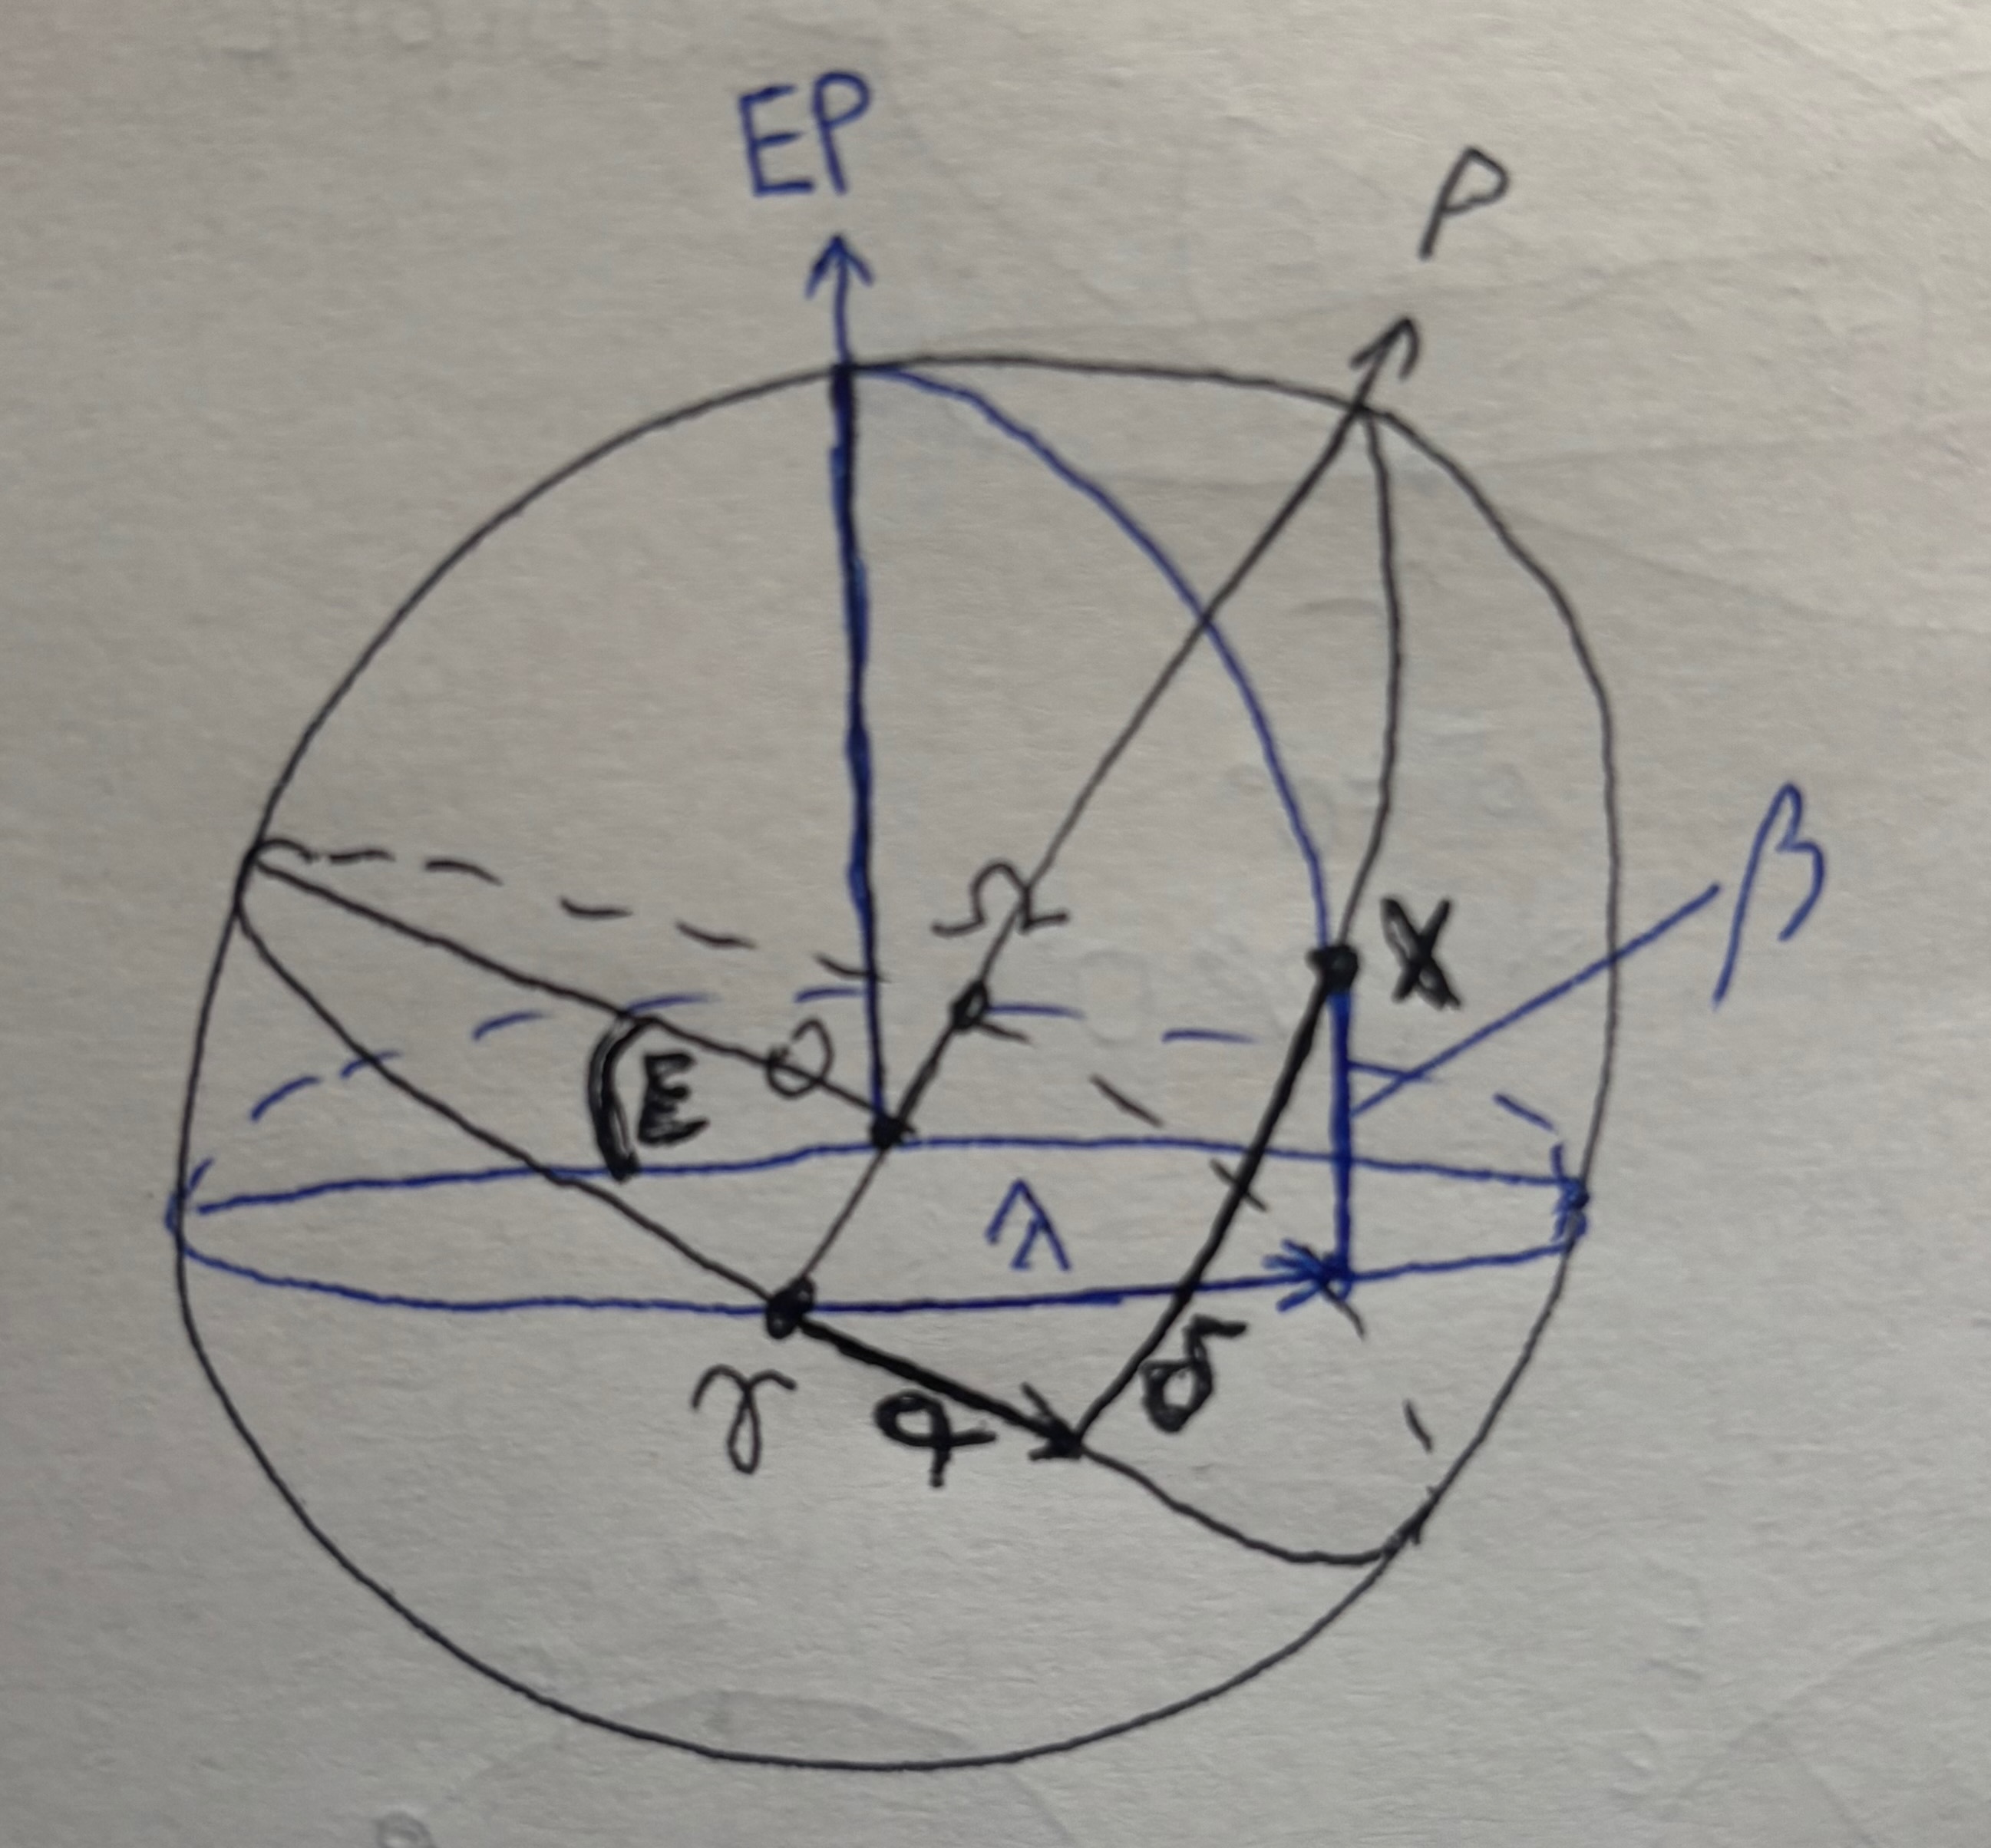 EP
P
β
Ω
X
O
E
λ
δ
γ
α